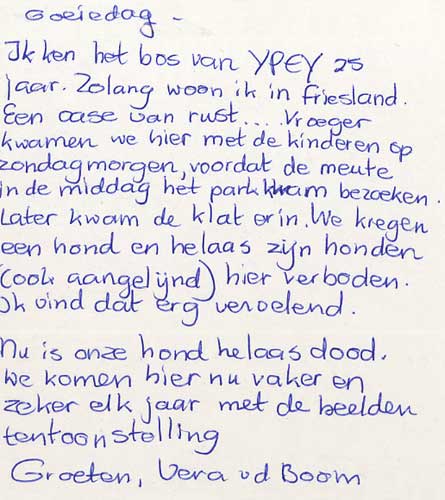 Goeiedag -
Ik ken het bos van YPEY 25
jaar. Zolang woon ik in friesland.
Een oase van rust.... Vroeger
kwamen we hier met de kinderen op
zondagmorgen, voordat de meute
in de middag het park kwam bezoeken.
Later kwam de klat erin. We kregen
een hond en helaas zijn honden
(ook aangelijnd) hier verboden.
Ik vind dat erg vervelend.
Nu is onze hond helaas dood.
We komen hier nu vaker en
zeker elk jaar met de beelden
tentoonstelling
Groeten, Vera vd Boom